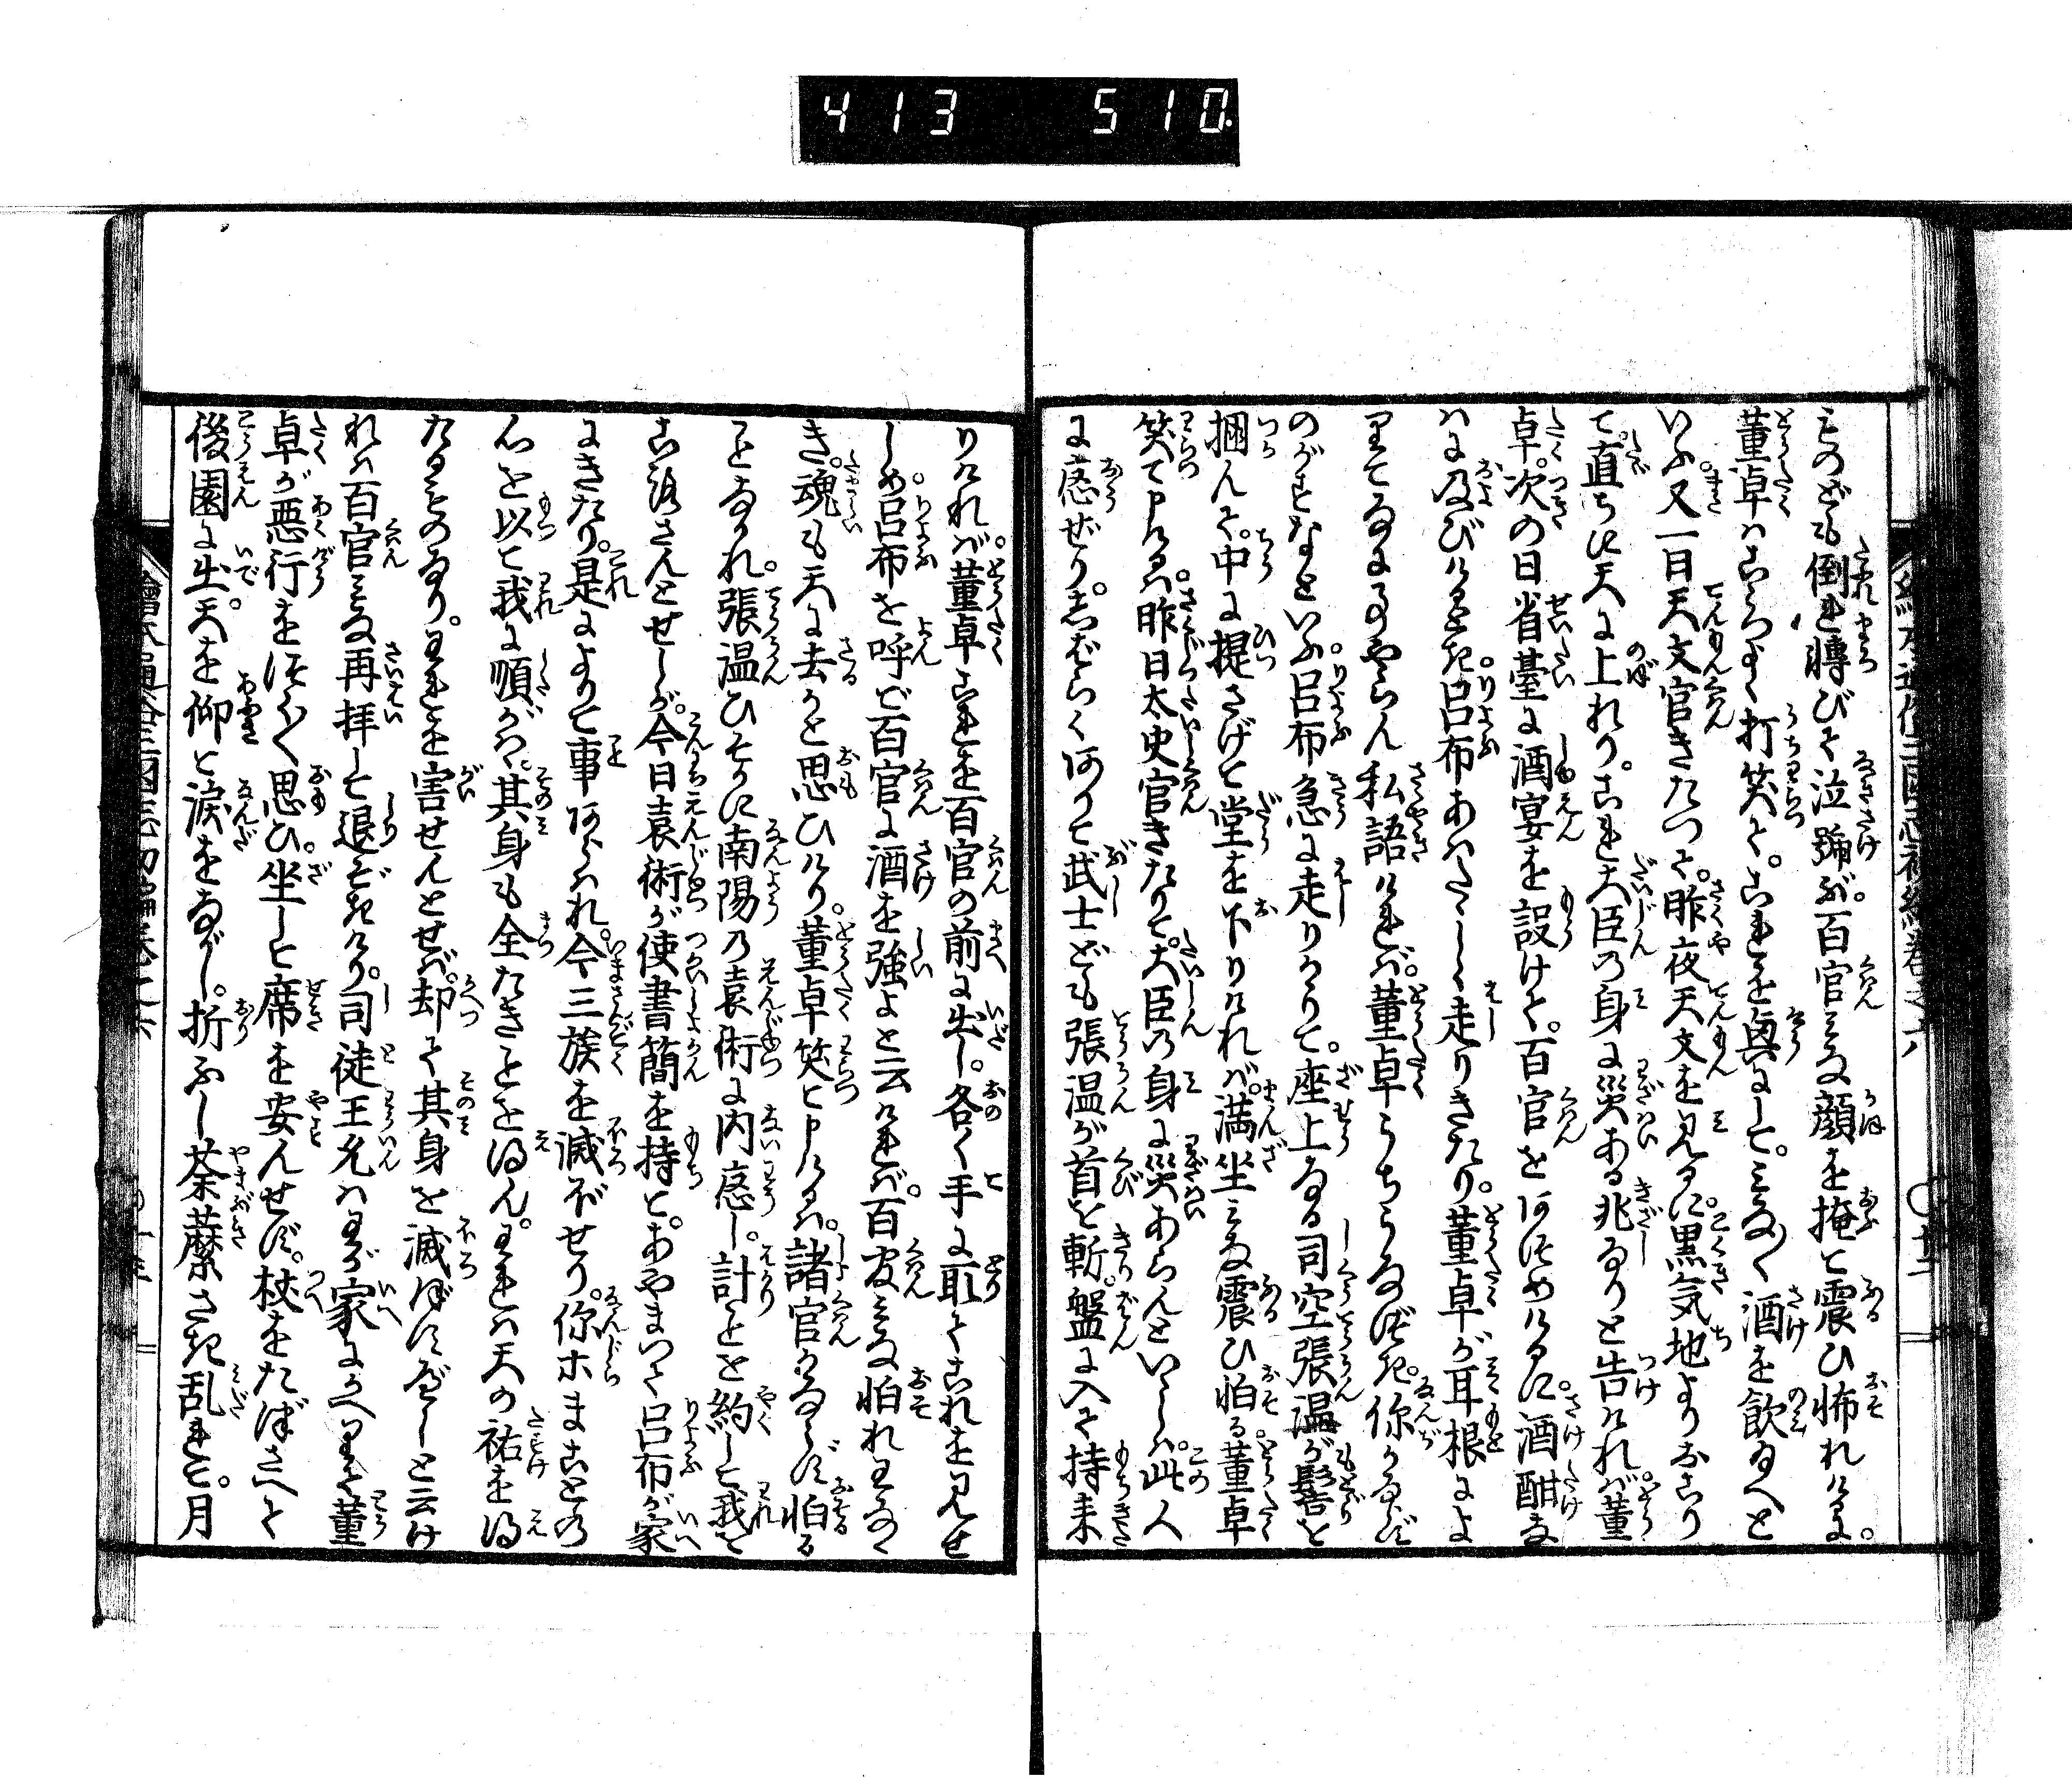 413 510
ものども倒れ轉びて泣號ぶ。百官みな顔を掩て震ひ怖れける。
董卓ハこゝろよく打笑て。これを興にして。みな〳〵酒を飲給へと
いふ。又一日天文官きたつて。昨夜天文を見るに。黒気地よりおこり
て。直ちに天に上れり。これ大臣の身に災ある兆なりと告けれバ。董
卓。次の日省臺に酒宴を設けて。百官をあつめけるに。酒酣な
ハに及びけるとき。呂布あハたゝしく走りきたり。董卓が耳根によ
りてなにことやらん私語けれバ。董卓うちうなづき。你かならず
のがすなといふ。呂布急に走りかゝりて。座上なる司空張温が髻を
掴んで。中に提さげて堂を下りけれバ。満坐みな震ひ怕る。董卓
笑て申けるハ。昨日太史官きたりて。大臣の身に災あらんといひしハ。此人
に應ぜり。志ばらくありて武士ども張温が首を斬。盤に入て持来
りけれバ。董卓これを百官の前に出し。各〳〵手に取てこれを見せ
しめ。呂布を呼で百官に酒を強よと云けれバ。百官みな怕れわなゝ
き。魂も天に去かと思ひけり。董卓笑て申けるハ。諸官かならず怕る
ことなかれ。張温ひそかに南陽の袁術に内應し。計ことを約して我を
ころさんとせしが。今日袁術が使書簡を持て。あやまつて呂布が家
にきたり。是によりて事あらハれ。今三族を滅ぼせり。你ホまことの
心を以て我に順がハゞ。其身も全たきことを得ん。われハ天の祐を得
たるものなり。われを害せんとせバ。却て其身を滅ぼすべしと云け
れハ百官みな再拝して退ぞきけり。司徒王允ハわが家にかへりて董
卓が悪行をつく〴〵思ひ。坐して席を安んせず。杖をたづさへて
後園に出。天を仰で涙をながし。折ふし荼蘪さき乱れて。月